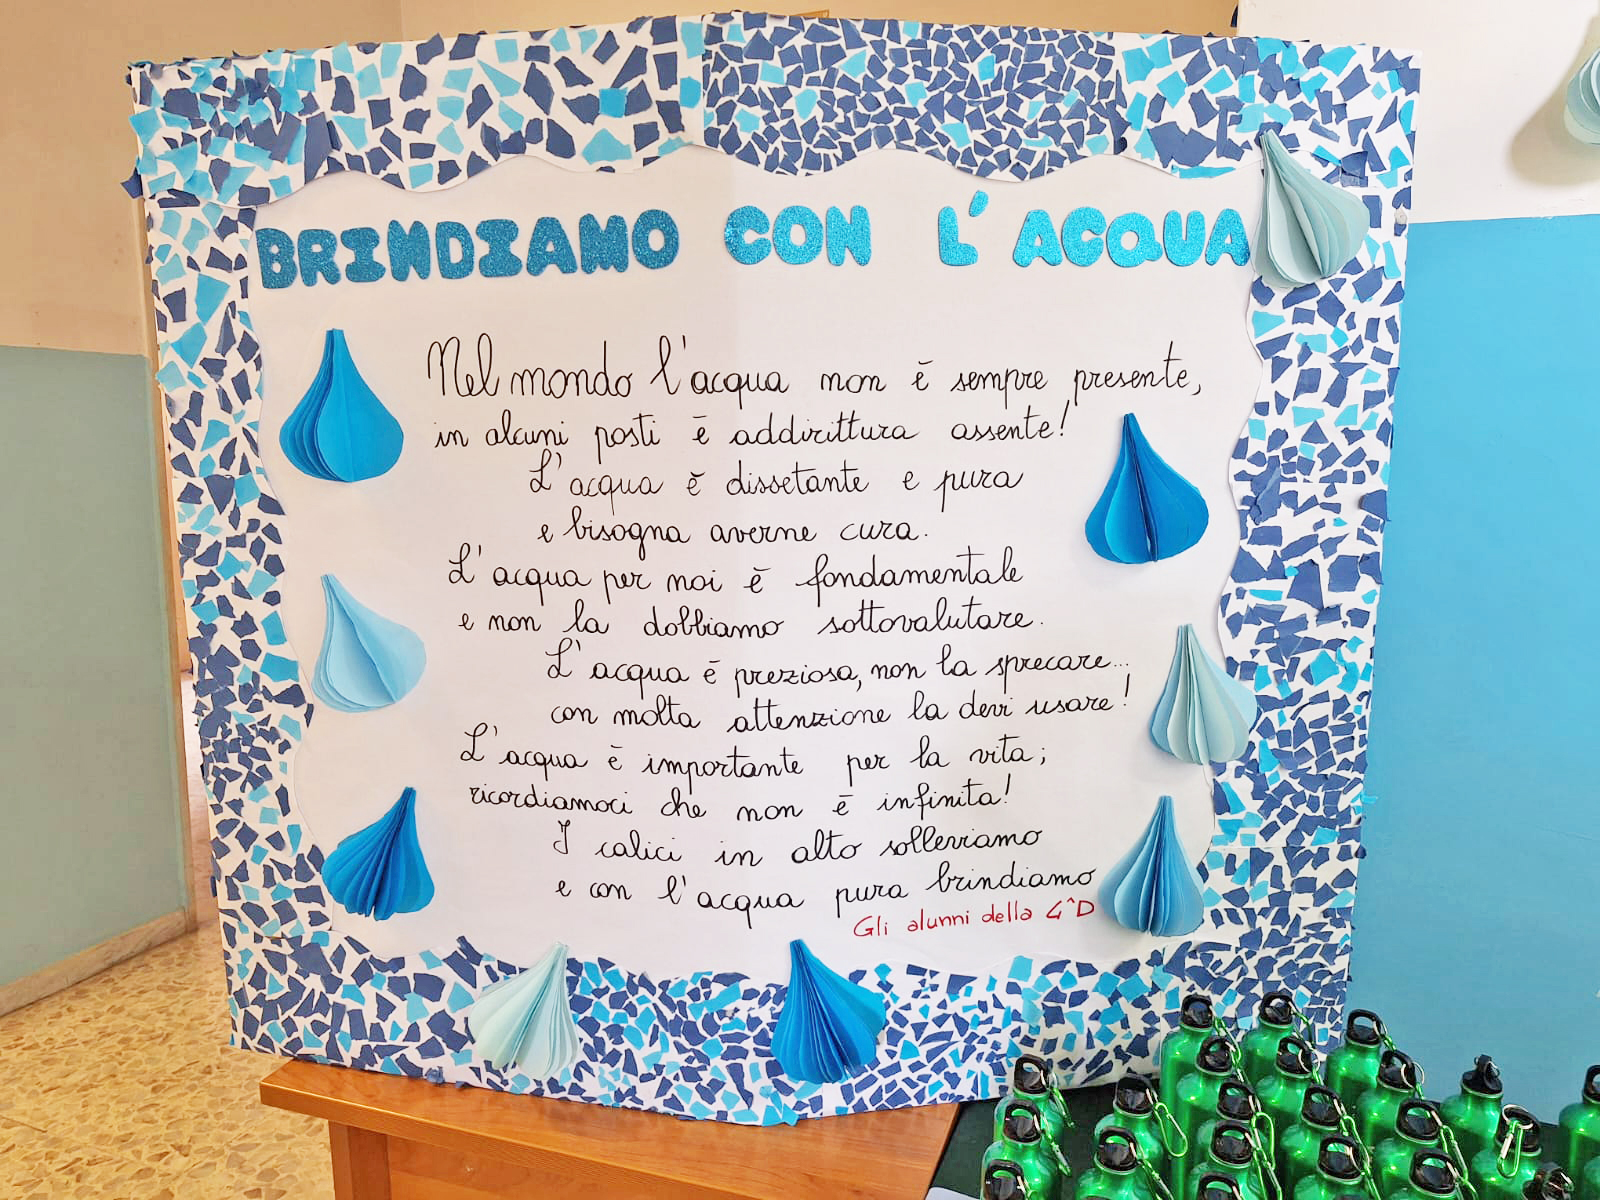 BRINDIAMO CON L'ACQUA
Nel mondo l'acqua non è sempre presente,
in alcuni posti è addirittura assente!
L'acqua è dissetante e pura
e bisogna averne cura.
L'acqua per noi è fondamentale
e non la dobbiamo sottovalutare.
L'acqua è preziosa, non la sprecare...
con molta attenzione la devi usare!
L'acqua è importante per la vita;
ricordiamoci che non è infinita!
I calici in alto solleviamo
e con l'acqua pura brindiamo
Gli alunni della 4^D